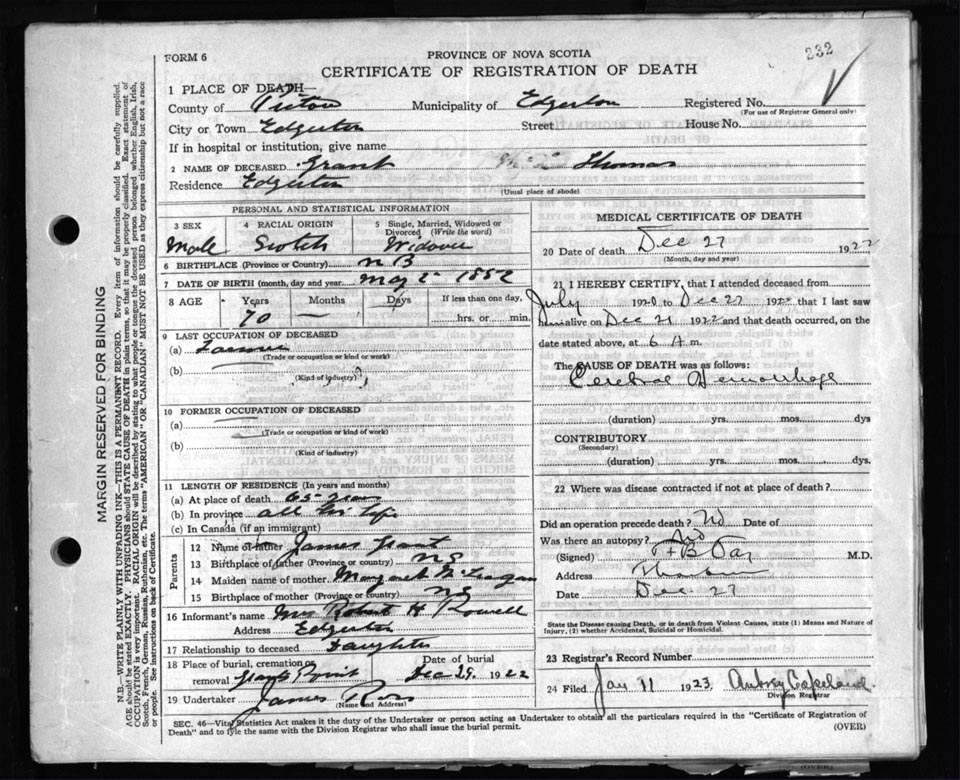 232
FORM 6
PROVINCE OF NOVA SCOTIA
CERTIFICATE OF REGISTRATION OF DEATH
1 PLACE OF DEATH—
County of Pictou Municipality of Edgerton Registered No.
(For use of Registrar General only)
City or Town Edgerton Street House No.
If in hospital or institution, give name
2 NAME OF DECEASED Grant Thomas
Residence Edgerton
(Usual place of abode)
PERSONAL AND STATISTICAL INFORMATION
3 SEX 4 RACIAL ORIGIN 5 Single, Married, Widowed or Divorced (Write the word)
Male Scotch Widower
6 BIRTHPLACE (Province or Country) N B
7 DATE OF BIRTH (month, day and year) May 2 1852
8 AGE Years Months Days If less than one day,
70 — hrs. or min.
9 LAST OCCUPATION OF DECEASED
(a) Farmer
(Trade or occupation or kind or work)
(b)
(Kind of industry)
10 FORMER OCCUPATION OF DECEASED
(a)
(Trade or occupation or kind or work)
(b)
(Kind of industry)
11 LENGTH OF RESIDENCE (In years and months)
(a) At place of death 65 years
(b) In province all his life
(c) In Canada (if an immigrant)
Parents
12 Name of father James Grant
13 Birthplace of father (Province or country) NS
14 Maiden name of mother Margaret
15 Birthplace of mother (Province or country) NS
16 Informant's name Mrs Robert H Powell
Address Edgerton
17 Relationship to deceased Daughter
18 Place of burial, cremation or Date of burial
removal Dec 29. 1922
19 Undertaker James Ross
(Name and Address)
MEDICAL CERTIFICATE OF DEATH
20 Date of death Dec 27 1922
(Month, day and year)
21 I HEREBY CERTIFY, that I attended deceased from
July 1920 to Dec 27 1922 that I last saw
him alive on Dec 21 1922 and that death occurred, on the
date stated above, at 6 A m.
The CAUSE OF DEATH was as follows:
Cerebral Hemorrhage
(duration) yrs. mos. dys
CONTRIBUTORY
(Secondary)
(duration) yrs. mos. dys.
22 Where was disease contracted if not at place of death?
Did an operation precede death? No Date of
Was there an autopsy? No
(Signed) M.D.
Address
Date Dec 27
State the Disease causing Death, or in death from Violent Causes, state (1) Means and Nature of
Injury, (2) whether Accidental, Suicidal or Homicidal.
23 Registrar's Record Number
24 Filed Jan 11 1923. Aubrey Copeland
Division Registrar
SEC. 46—Vital Statistics Act makes it the duty of the Undertaker or person acting as Undertaker to obtain all the particulars required in the "Certificate of Registration of
Death" and to file the same with the Division Registrar who shall issue the burial permit.
(OVER)
MARGIN RESERVED FOR BINDING
N.B.—WRITE PLAINLY WITH UNFADING INK—THIS IS A PERMANENT RECORD. Every item of information should be carefully supplied.
AGE should be stated EXACTLY. PHYSICIANS should STATE CAUSE OF DEATH in plain terms, so that it may be properly classified. Exact statement of
OCCUPATION is very important. RACIAL ORIGIN will be described by stating to what people or tongue the deceased person belonged whether English, Irish,
Scotch, French, German, Russian, Ruthenian, etc. The terms "AMERICAN" OR "CANADIAN" MUST NOT BE USED as they express citizenship but not a race
or people. See instructions on back of Certificate.
(OVER)